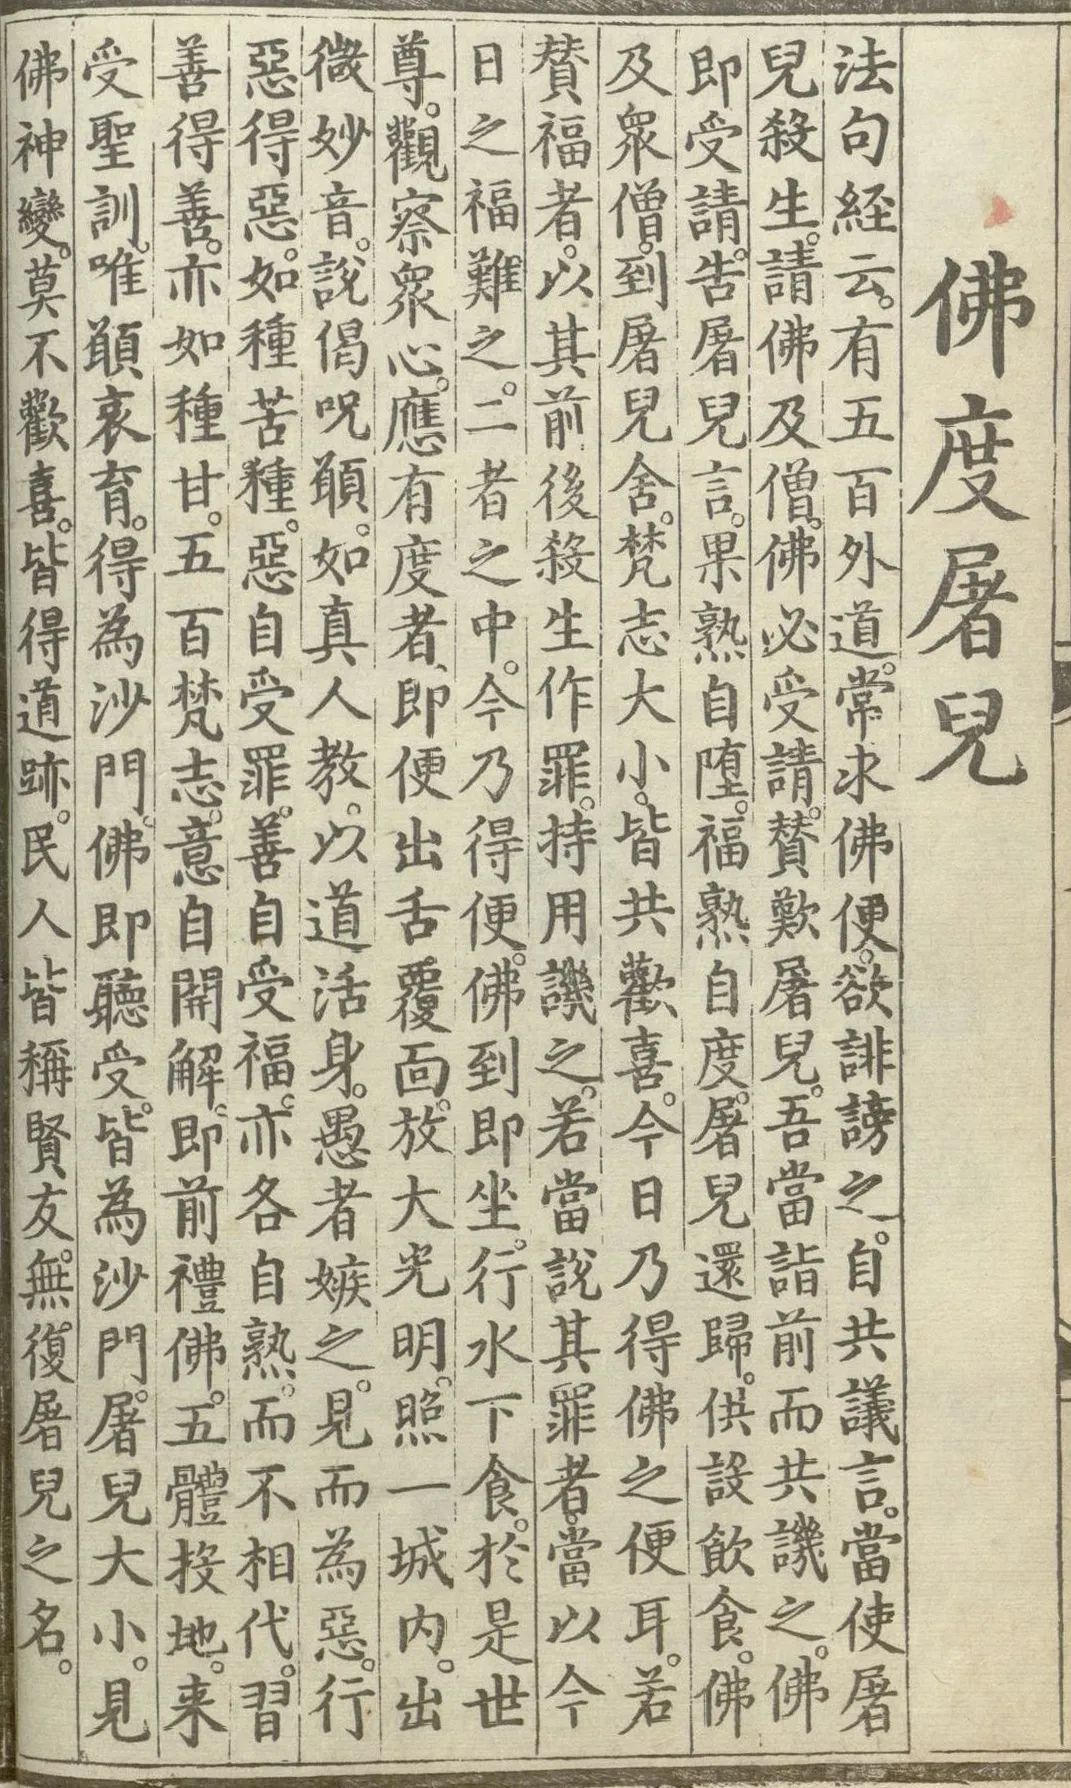 佛度屠兒
法句経云。有五百外道。常求佛便。欲誹謗之。自共議言。當使屠
兒殺生。請佛及僧。佛必受請。賛歎屠兒。吾當詣前而共譏之。佛
即受請。告屠兒言。果熟自堕。福熟自度。屠兒還歸。供設飲食。佛
及衆僧。到屠兒舍。梵志大小。皆共歡喜。今日乃得佛之便耳。若
賛福者。以其前後殺生作罪。持用譏之。若當說其罪者。當以今
日之福難之。二者之中。今乃得便。佛到即坐。行水下食。於是世
尊。觀察衆心。應有度者、即便出舌覆面。放大光明。照一城内。出
微妙音。說偈呪願。如真人教。以道活身。愚者嫉之。見而為惡。行
惡得惡。如種苦種。惡自受罪。善自受福。亦各自熟。而不相代。習
善得善。亦如種甘。五百梵志。意自開解。即前禮佛。五體投地。来
受聖訓。唯願哀育。得為沙門。佛即聽受。皆為沙門。屠兒大小。見
佛神變。莫不歡喜。皆得道跡。民人皆稱賢友。無復屠兒之名。